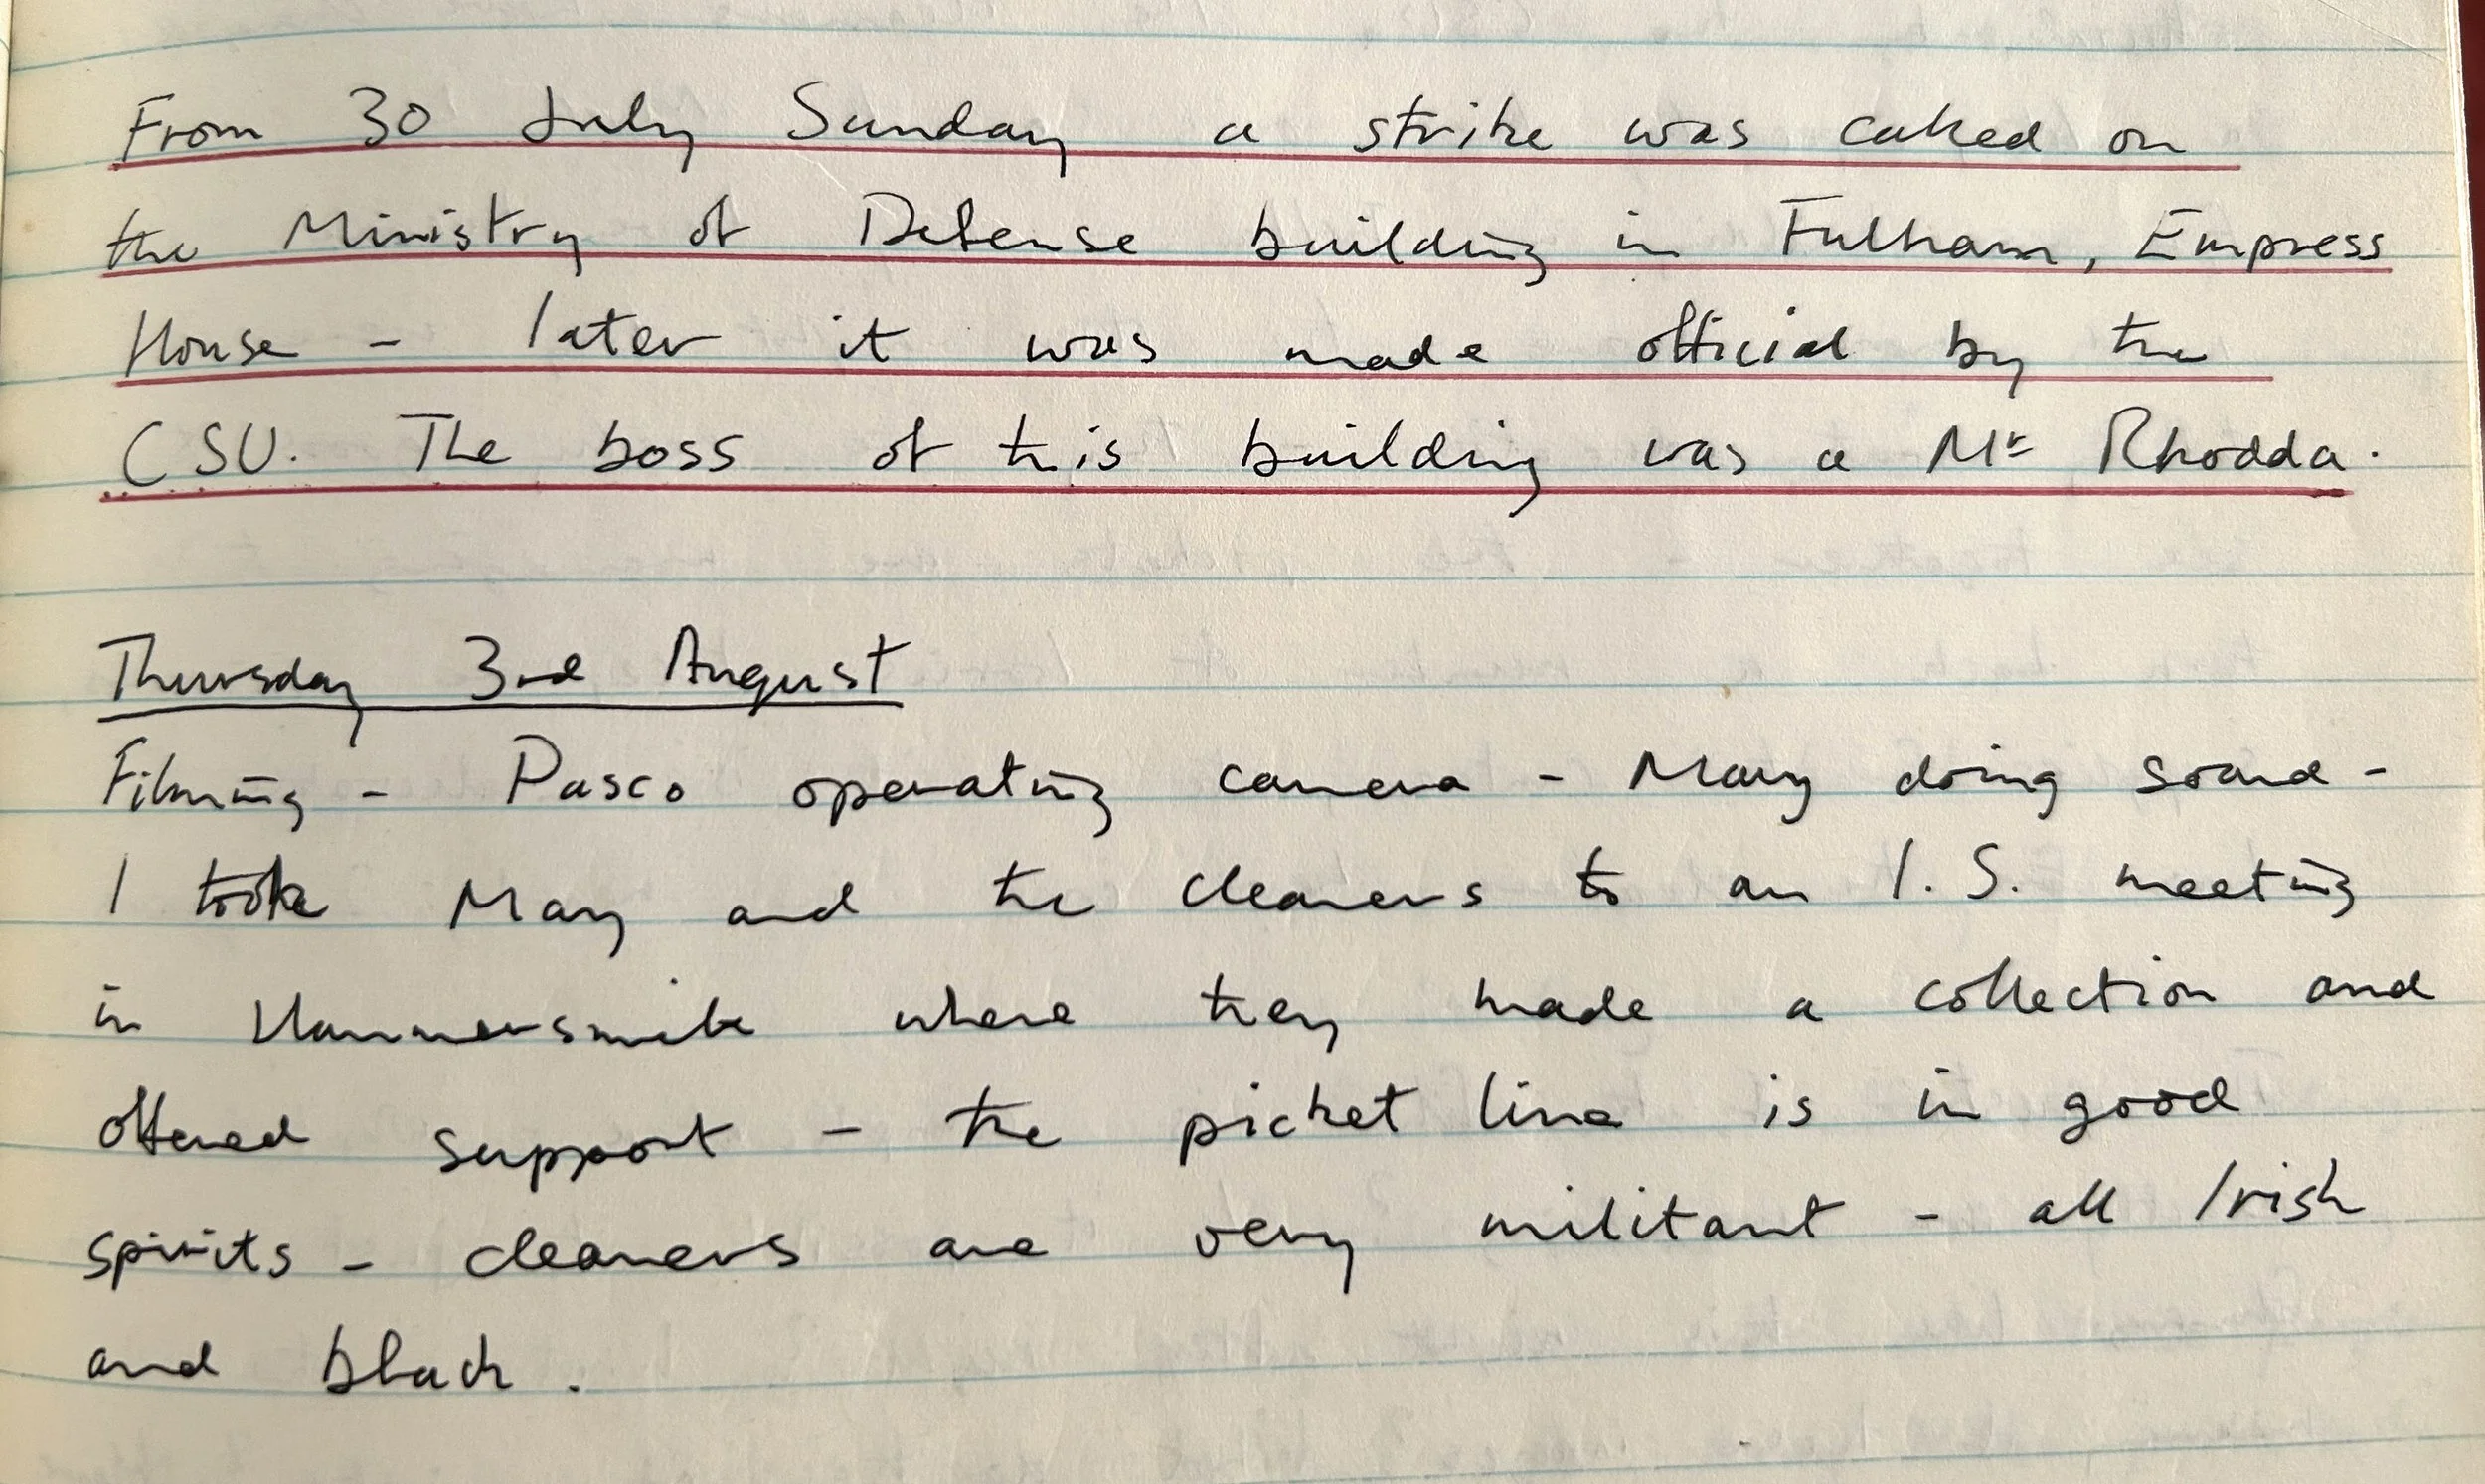 From 30 July Sunday a strike was called on
the Ministry of Defense building in Fulham, Empress
House - later it was made official by the
CSU. The boss of this building was a Mr Rhodda.
Thursday 3rd August
Filming - Pasco operating camera - Mary doing sound -
I took May and the cleaners to an I.S. meeting
in Hammersmith where they made a collection and
offered support - the picket line is in good
spirits - cleaners are very militant - all Irish
and black.